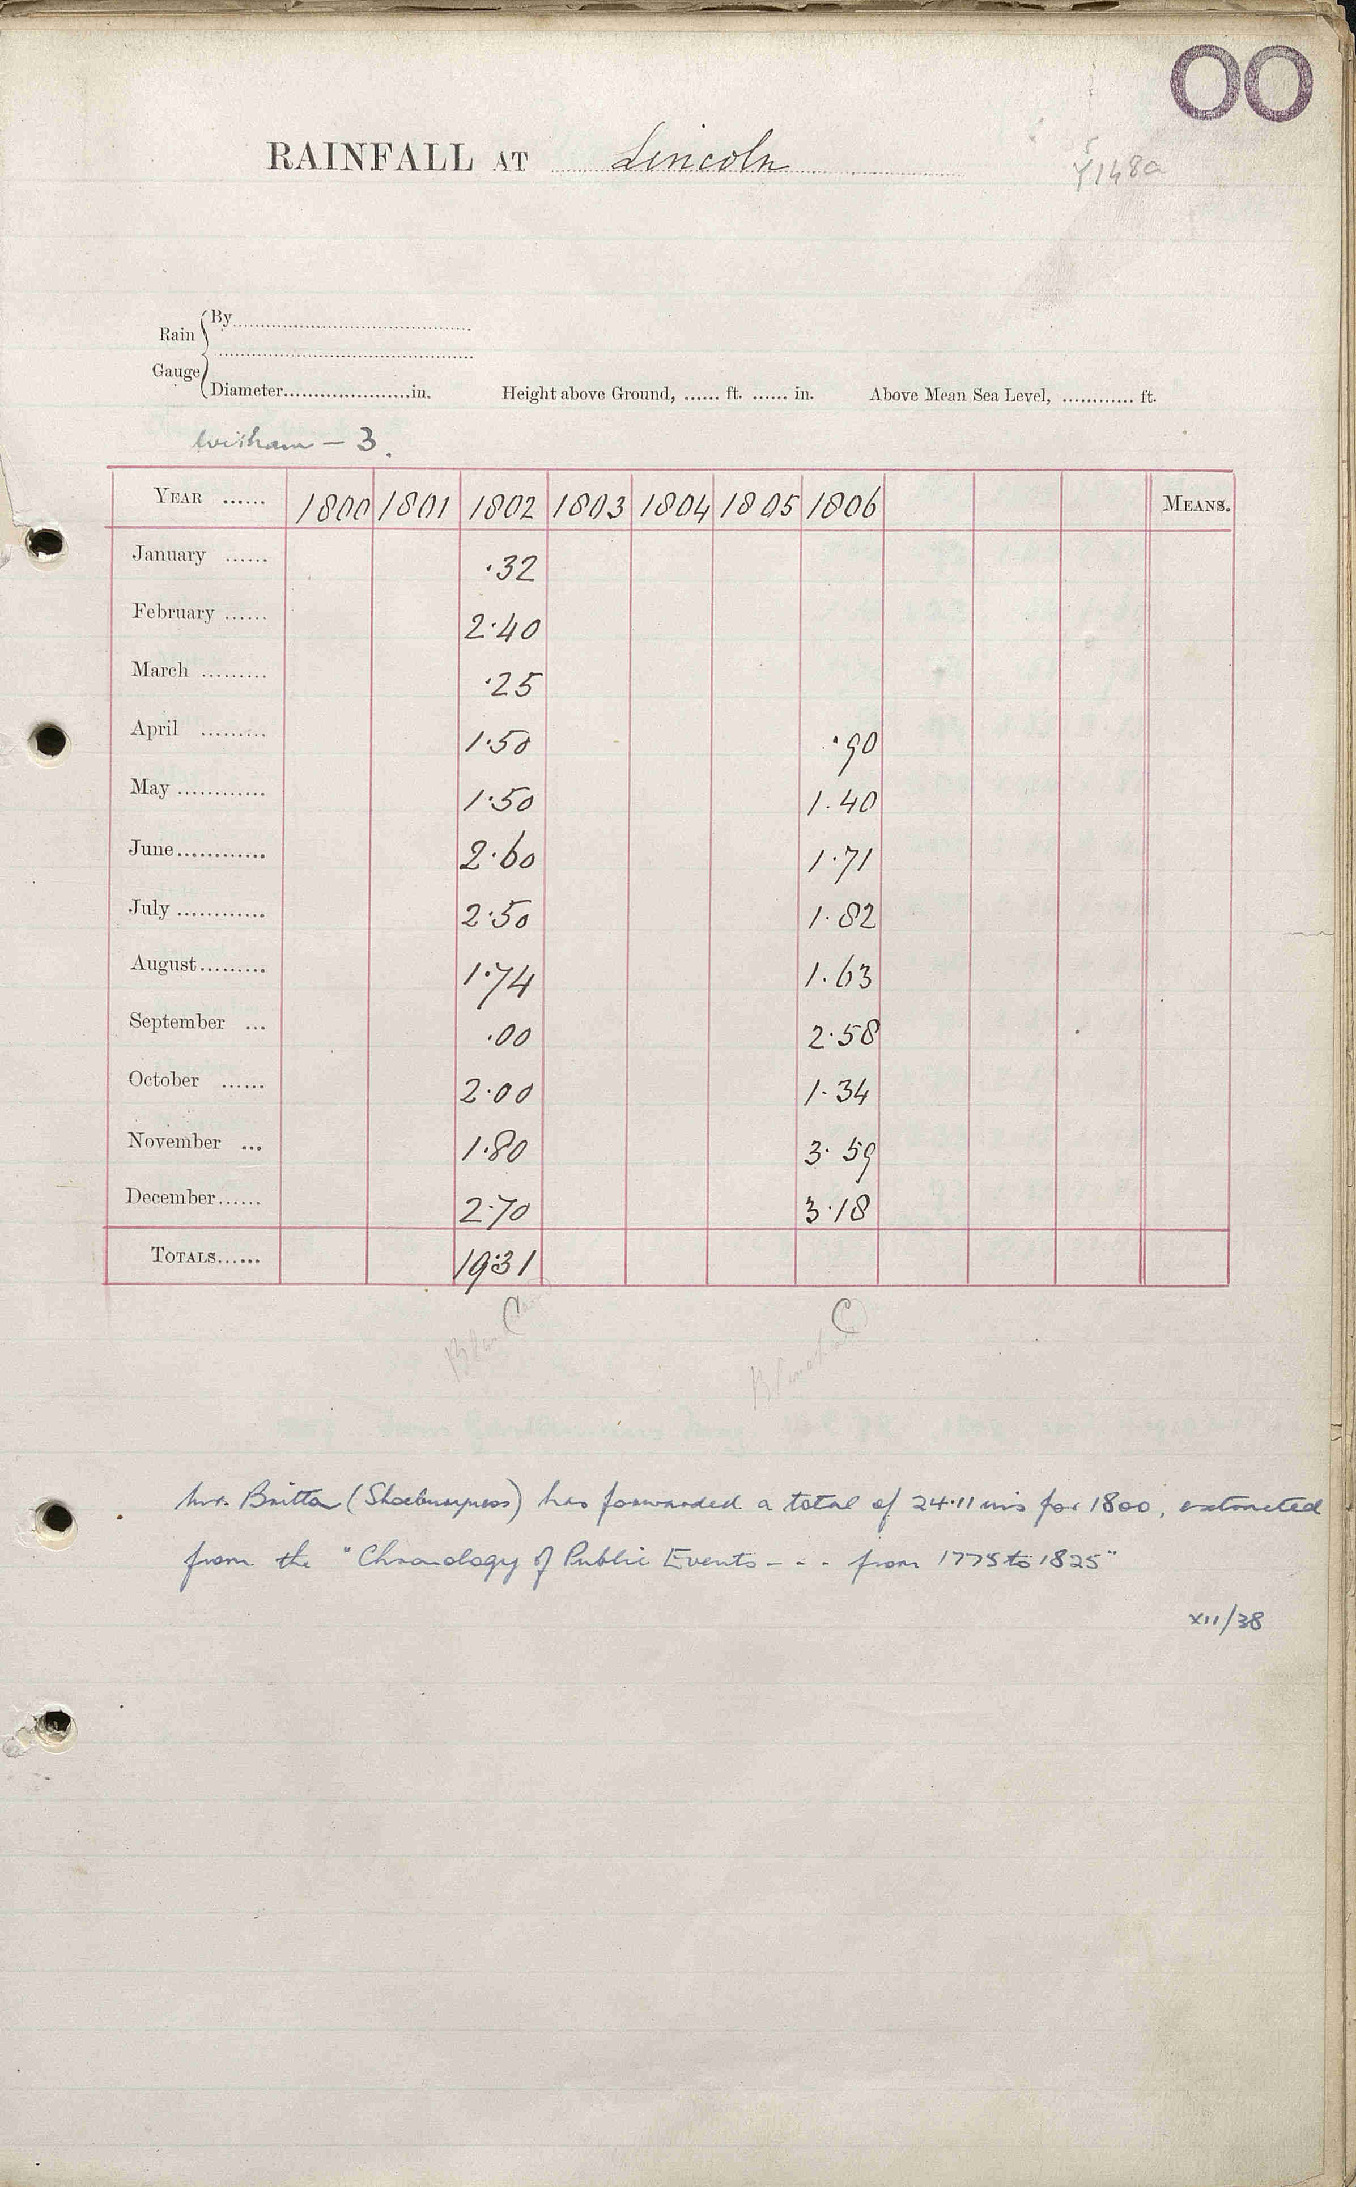 OO
RAINFALL AT Lincoln
Y148a
Rain Gauge
By
Diameter in. Height above Ground, ...... ft. ...... in. Above Mean Sea Level, ............ ft.
Witham - 3.
YEAR ...... 1800 1801 1802 1803 1804 1805 1806 MEANS.
January ...... .32
February ...... 2.40
March ......... .25
April ......... 1.50 .90
May ............ 1.50 1.40
June ............ 2.60 1.71
July ............ 2.50 1.82
August ......... 1.74 1.63
September ... .00 2.58
October ...... 2.00 1.34
November ... 1.80 3.59
December ...... 2.70 3.18
TOTALS ...... 19.31
C C
Mr. Britton (Shoeburyness) has forwarded a total of 24.11 ins for 1800, extracted
from the "Chronology of Public Events - - - from 1775 to 1825"
XII/38